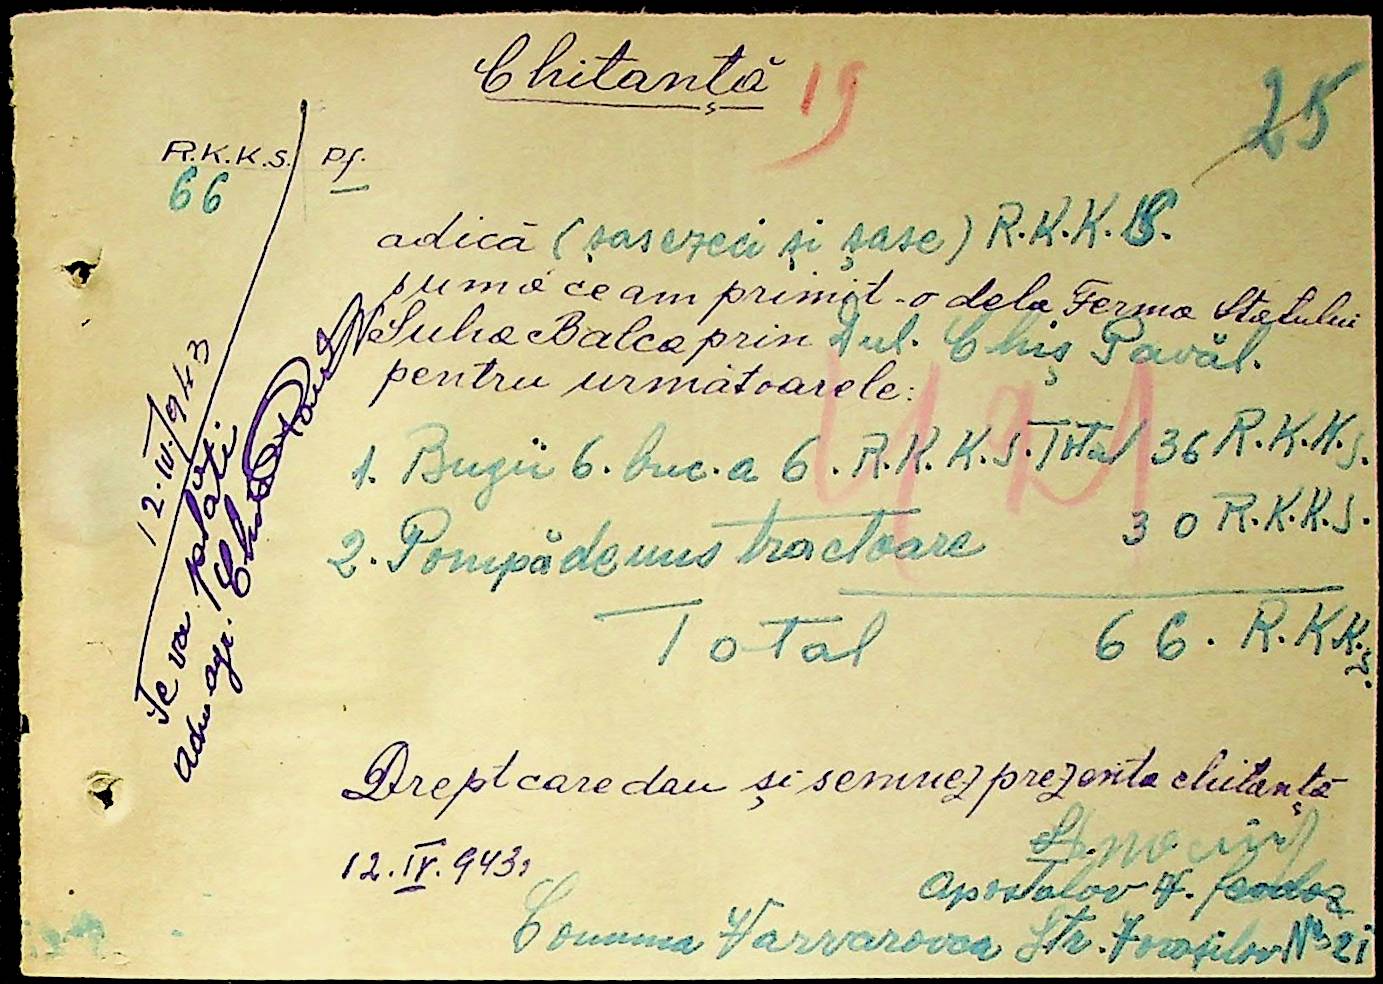 Chitanță 19
25
R.K.K.S. Pf.
66
adică (șasezeci și șase) R.K.K.S.
suma ce am primit-o dela Ferma Statului
Suha Balca prin Dul. Chiș Pavăl.
pentru următoarele:
1. Bugii 6. buc. a 6. R.K.K.S. Total 36 R.K.K.S.
2. Pompă de uns tractoare 30 R.K.K.S.
Total 66. R.K.K.S.
Drept care dau și semnez prezenta chitanță
12.IV.943,
Apostolov F.
Comuna Varvarovca Str. No 21
12.IV.943
Se va plăti
adm. agr.